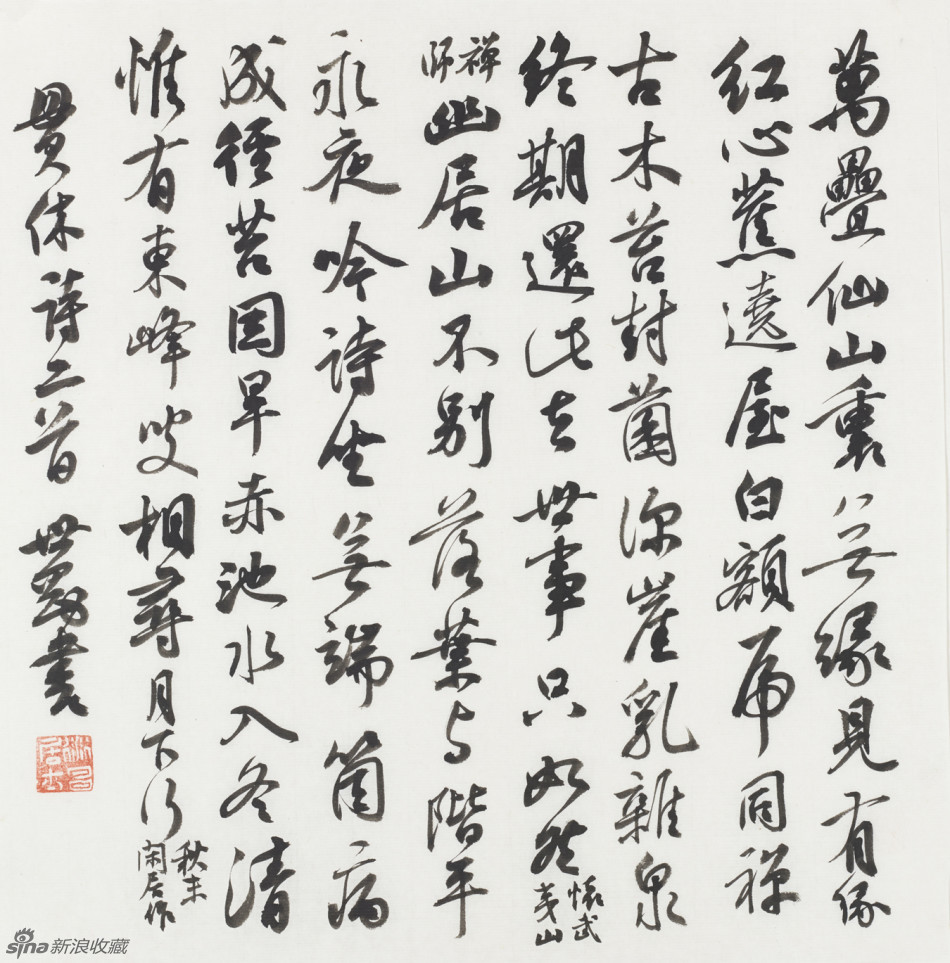 萬疊仙山裏無緣見有緣
紅心蕉遶屋白額虎同禪
古木苔封菌深崖乳雜泉
終期還此去世事只如然懷武夷山
禪師幽居山不別落葉与階平
永夜吟詩坐無端箇病
成徑苔因旱赤池水入冬清
惟有東峰叟相尋月下行秋末閑居作
貫休詩二首 世襄書
sina新浪收藏